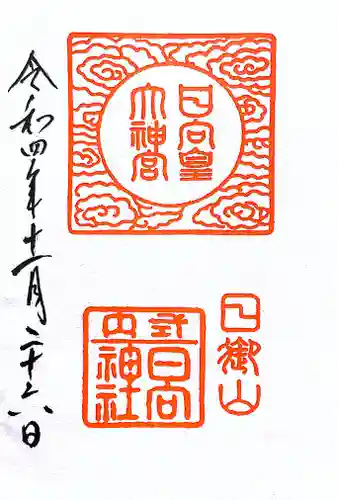 日向皇
大神宮
日御山
式日向
内神社
令和四年十一月二十六日